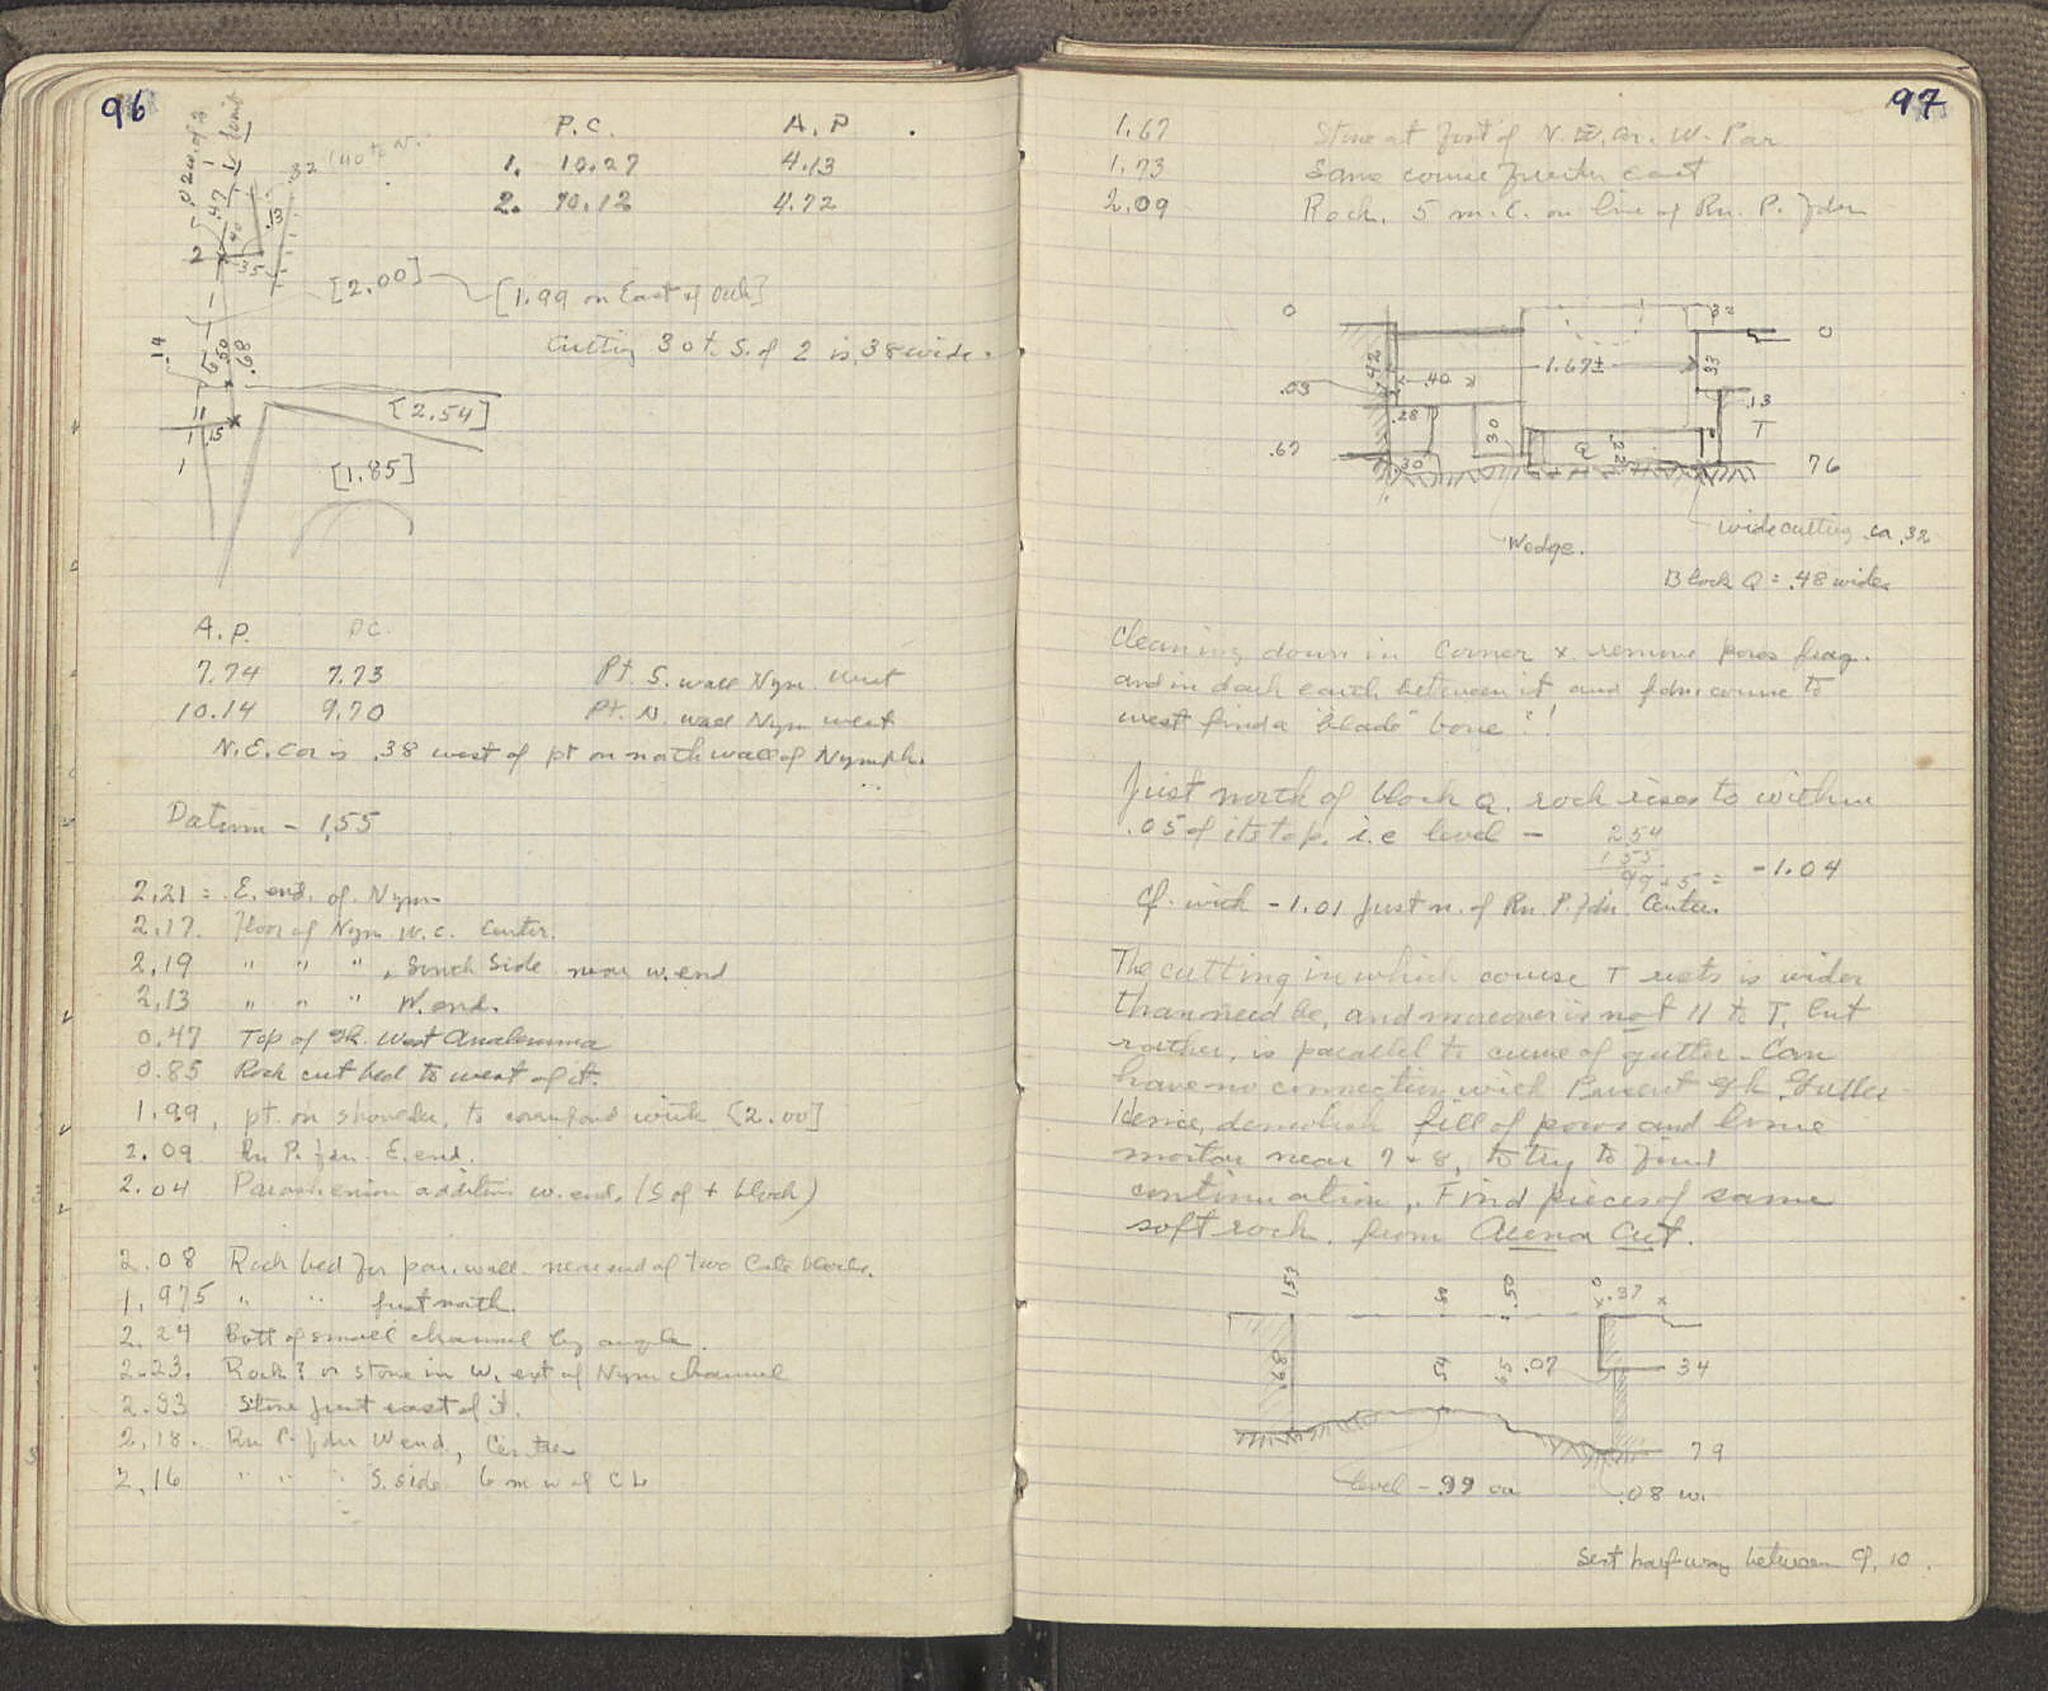 96
P.C. A.P.
1. 10.27 4.13
2. 10.12 4.72
.32
.47
.13
.40
2
.35
[2.00] [1.99 on East of Orch]
Cutting 30 + S. of 2 is .38 wide.
.14
.50
.68
[2.54]
.15
1
[1.85]
A.P. P.C.
7.74 7.73 Pt. S. wall Nym. West
10.14 9.70 Pt. N. wall Nym west
N.E. Cor is .38 west of pt on north wall of Nymph.
Datum - 1.55
2.21 = E. end. of Nym.
2.17. Floor of Nym W.C. Center.
2.19 " " " , South Side near w. end
2.13 " " " W. end.
0.47 Top of Gk. West Analemma
0.85 Rock cut bed to west of it.
1.99, pt. on shoulder, to correspond with [2.00]
2.09 Rn P. fdn. E. end.
2.04 Paraskenion addition w. end. (S of + block)
2.08 Rock bed for par. wall near end of two blocks.
1.975 " " just north.
2.24 Bott of small channel by angle.
2.23. Rock? or stone in W. ext of Nym channel
2.33 Stone just east of it.
2.18. Rn P. fdn W end, Center
2.16 " " " S. side 6 m w of CL
97
1.67 Stone at foot of N.W. W. Par
1.73 Same course further east
2.09 Rock. 5 m. E. on line of Rn. P. fdn
0 .32 0
.42 .40 1.67± .33
.03
.28 30 .13
T
.67 .30 Q .22 76
Wedge. wide cutting ca .32
Block Q = .48 wide
Cleaning down in Corner x remove poros frag.
and in dark earth between it and fdn. course to
west find a "blade" bone !!
Just north of block Q. rock rises to within
.05 of its top. i.e level - 2.54
1 55
99 + 5 = -1.04
Cf. with -1.01 just n. of Rn. P. fdn. Center.
The cutting in which course T rests is wider
than need be, and moreover is not // to T, but
rather, is parallel to curve of gutter. Can
have no connection with Present Gk. Gutter
Hence, demolish fill of poros and lime
mortar near 7 + 8, to try to find
continuation. Find pieces of same
soft rock. from Arena Cut.
153 .50 0 .37
.78 .54 .65 .07 34
79
level - .99 ca .08 w.
Sect half way between 9, 10.